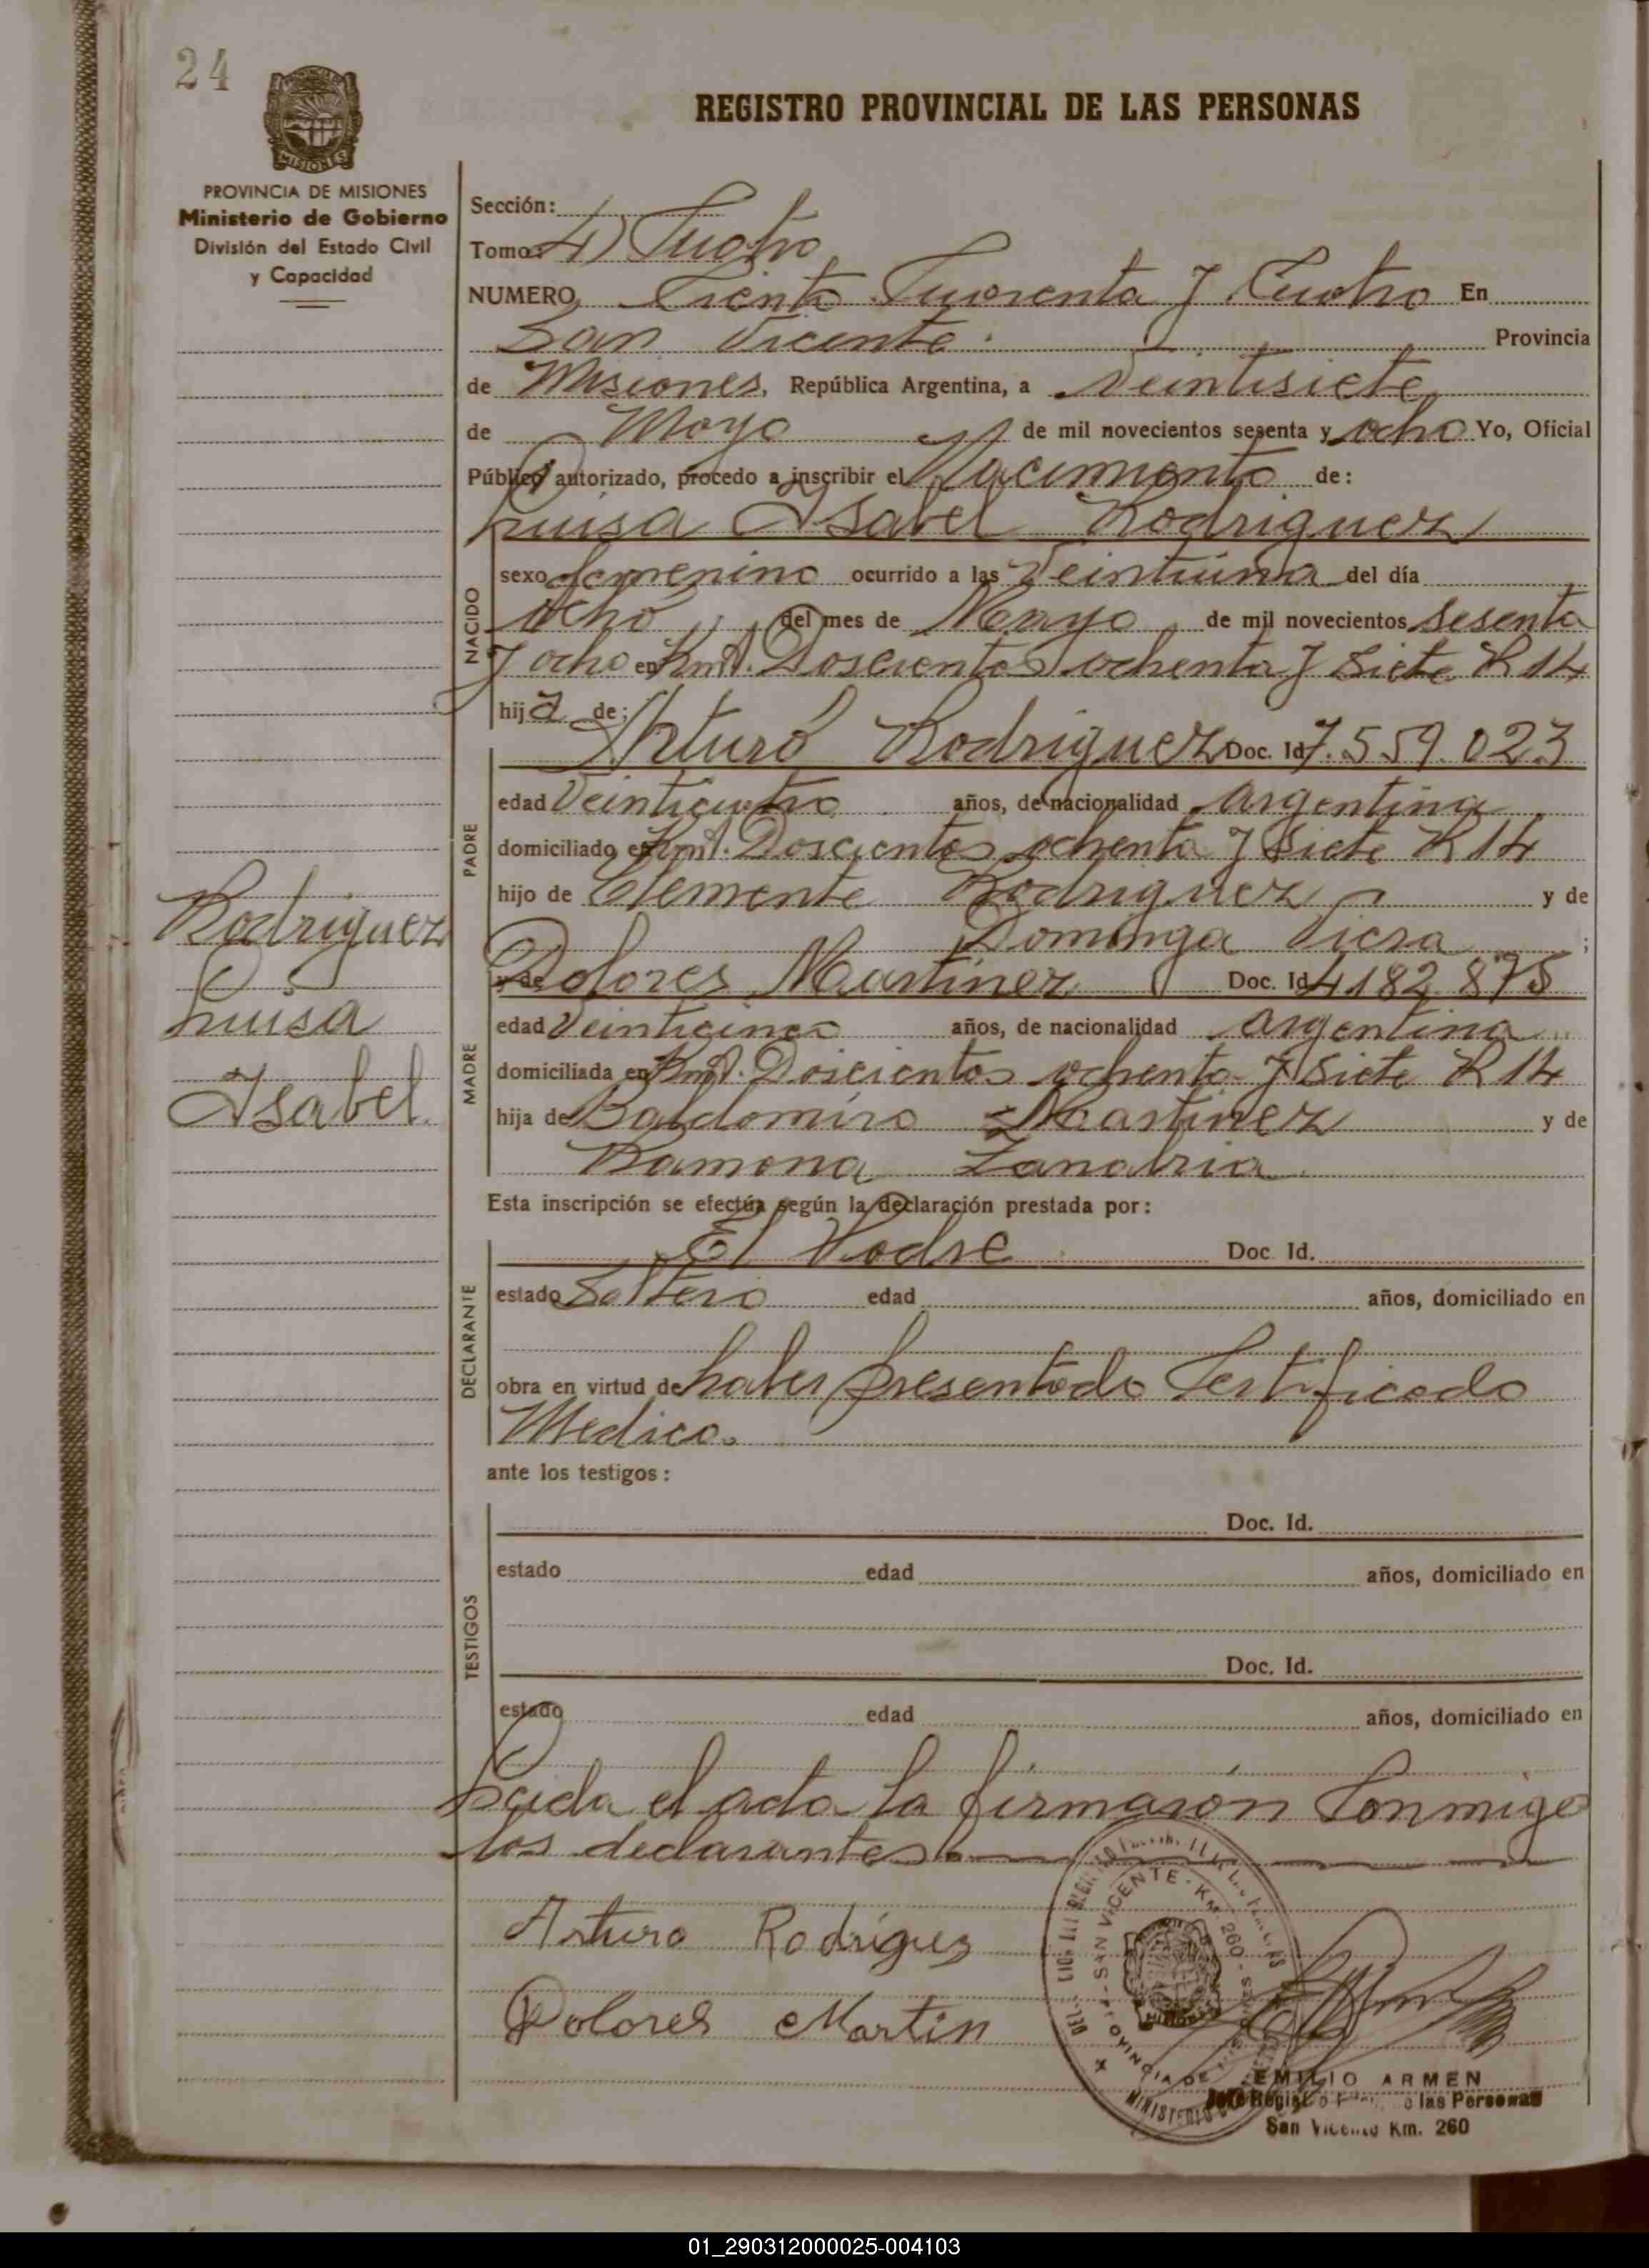 24
MISIONES
PROVINCIA DE MISIONES
Ministerio de Gobierno
División del Estado Civil
y Capacidad
REGISTRO PROVINCIAL DE LAS PERSONAS
Sección:
Tomo: 4) Cuatro
NUMERO Ciento Cuarenta y Cuatro En
San Vicente. Provincia
de Misiones, República Argentina, a Veintisiete
de Mayo de mil novecientos sesenta y ocho Yo, Oficial
Público autorizado, procedo a inscribir el Nacimiento de:
Luisa Isabel Rodriguez
NACIDO
sexo femenino ocurrido a las Veintiuna del día
Ocho del mes de Mayo de mil novecientos sesenta
y ocho en Kmt. Doscientos ochenta y Siete R 14
hija de:
Arturo Rodriguez Doc. Id 7.559.023
PADRE
edad Veinticuatro años, de nacionalidad argentina
domiciliado en Kmt. Doscientos ochenta y Siete R 14
hijo de Clemente Rodriguez y de
Dominga Viera ;
y de Dolores Martinez Doc. Id 4182.875
MADRE
edad Veinticinco años, de nacionalidad argentina
domiciliada en Kmt. Doscientos ochenta y Siete R 14
hija de Baldomiro Martinez y de
Ramona Zanabria.
Rodriguez
Luisa
Isabel.
Esta inscripción se efectúa según la declaración prestada por:
El Padre Doc. Id.
DECLARANTE
estado Soltero edad años, domiciliado en
obra en virtud de haber presentado Certificado
Medico.
ante los testigos:
TESTIGOS
Doc. Id.
estado edad años, domiciliado en
Doc. Id.
estado edad años, domiciliado en
Leida el acta la firmaron Conmigo
los declarantes
Arturo Rodríguez
Dolores Martin
SAN VICENTE - KM 260 -
PROVINCIA DE
MINISTERIO
EMILIO ARMEN
las Personas
San Vicente Km. 260
01_290312000025-004103